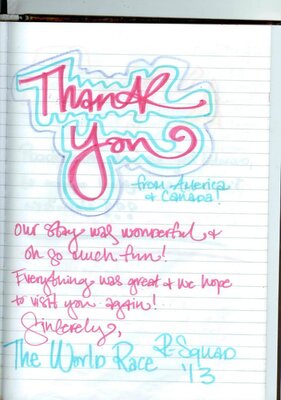 Thank
You
from America
& Canada!
our stay was wonderful &
oh so much fun!
Everything was great & we hope
to visit you again!
Sincerely,
The World Race R-Squad
'13